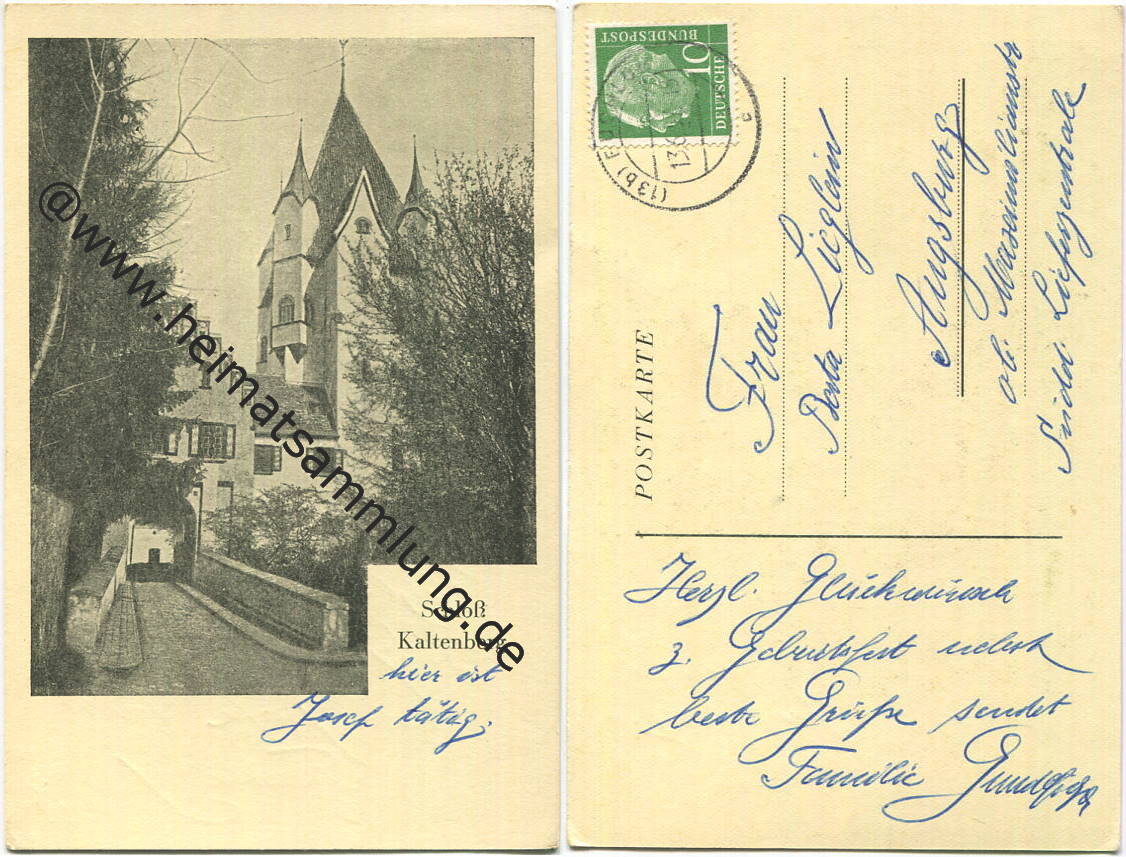 @www.heimatsammlung.de
Schloß
Kaltenberg
hier ist
Josef tätig.
DEUTSCHE
BUNDESPOST
10
(13b)
POSTKARTE
Frau
Berta Lieglein
Augsburg
ob. Maximilianstr
Südd. Lieferzentrale
Herzl. Glückwünsch
z. Geburtsfest nebst
beste Grüße sendet
Familie